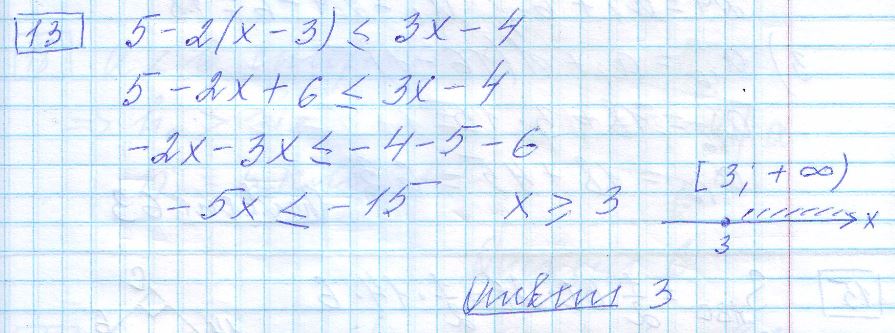 13 5 - 2(x - 3) ≤ 3x - 4
5 - 2x + 6 ≤ 3x - 4
-2x - 3x ≤ -4 - 5 - 6
[3; +∞)
-5x ≤ -15 x ≥ 3
x
3
Ответ 3